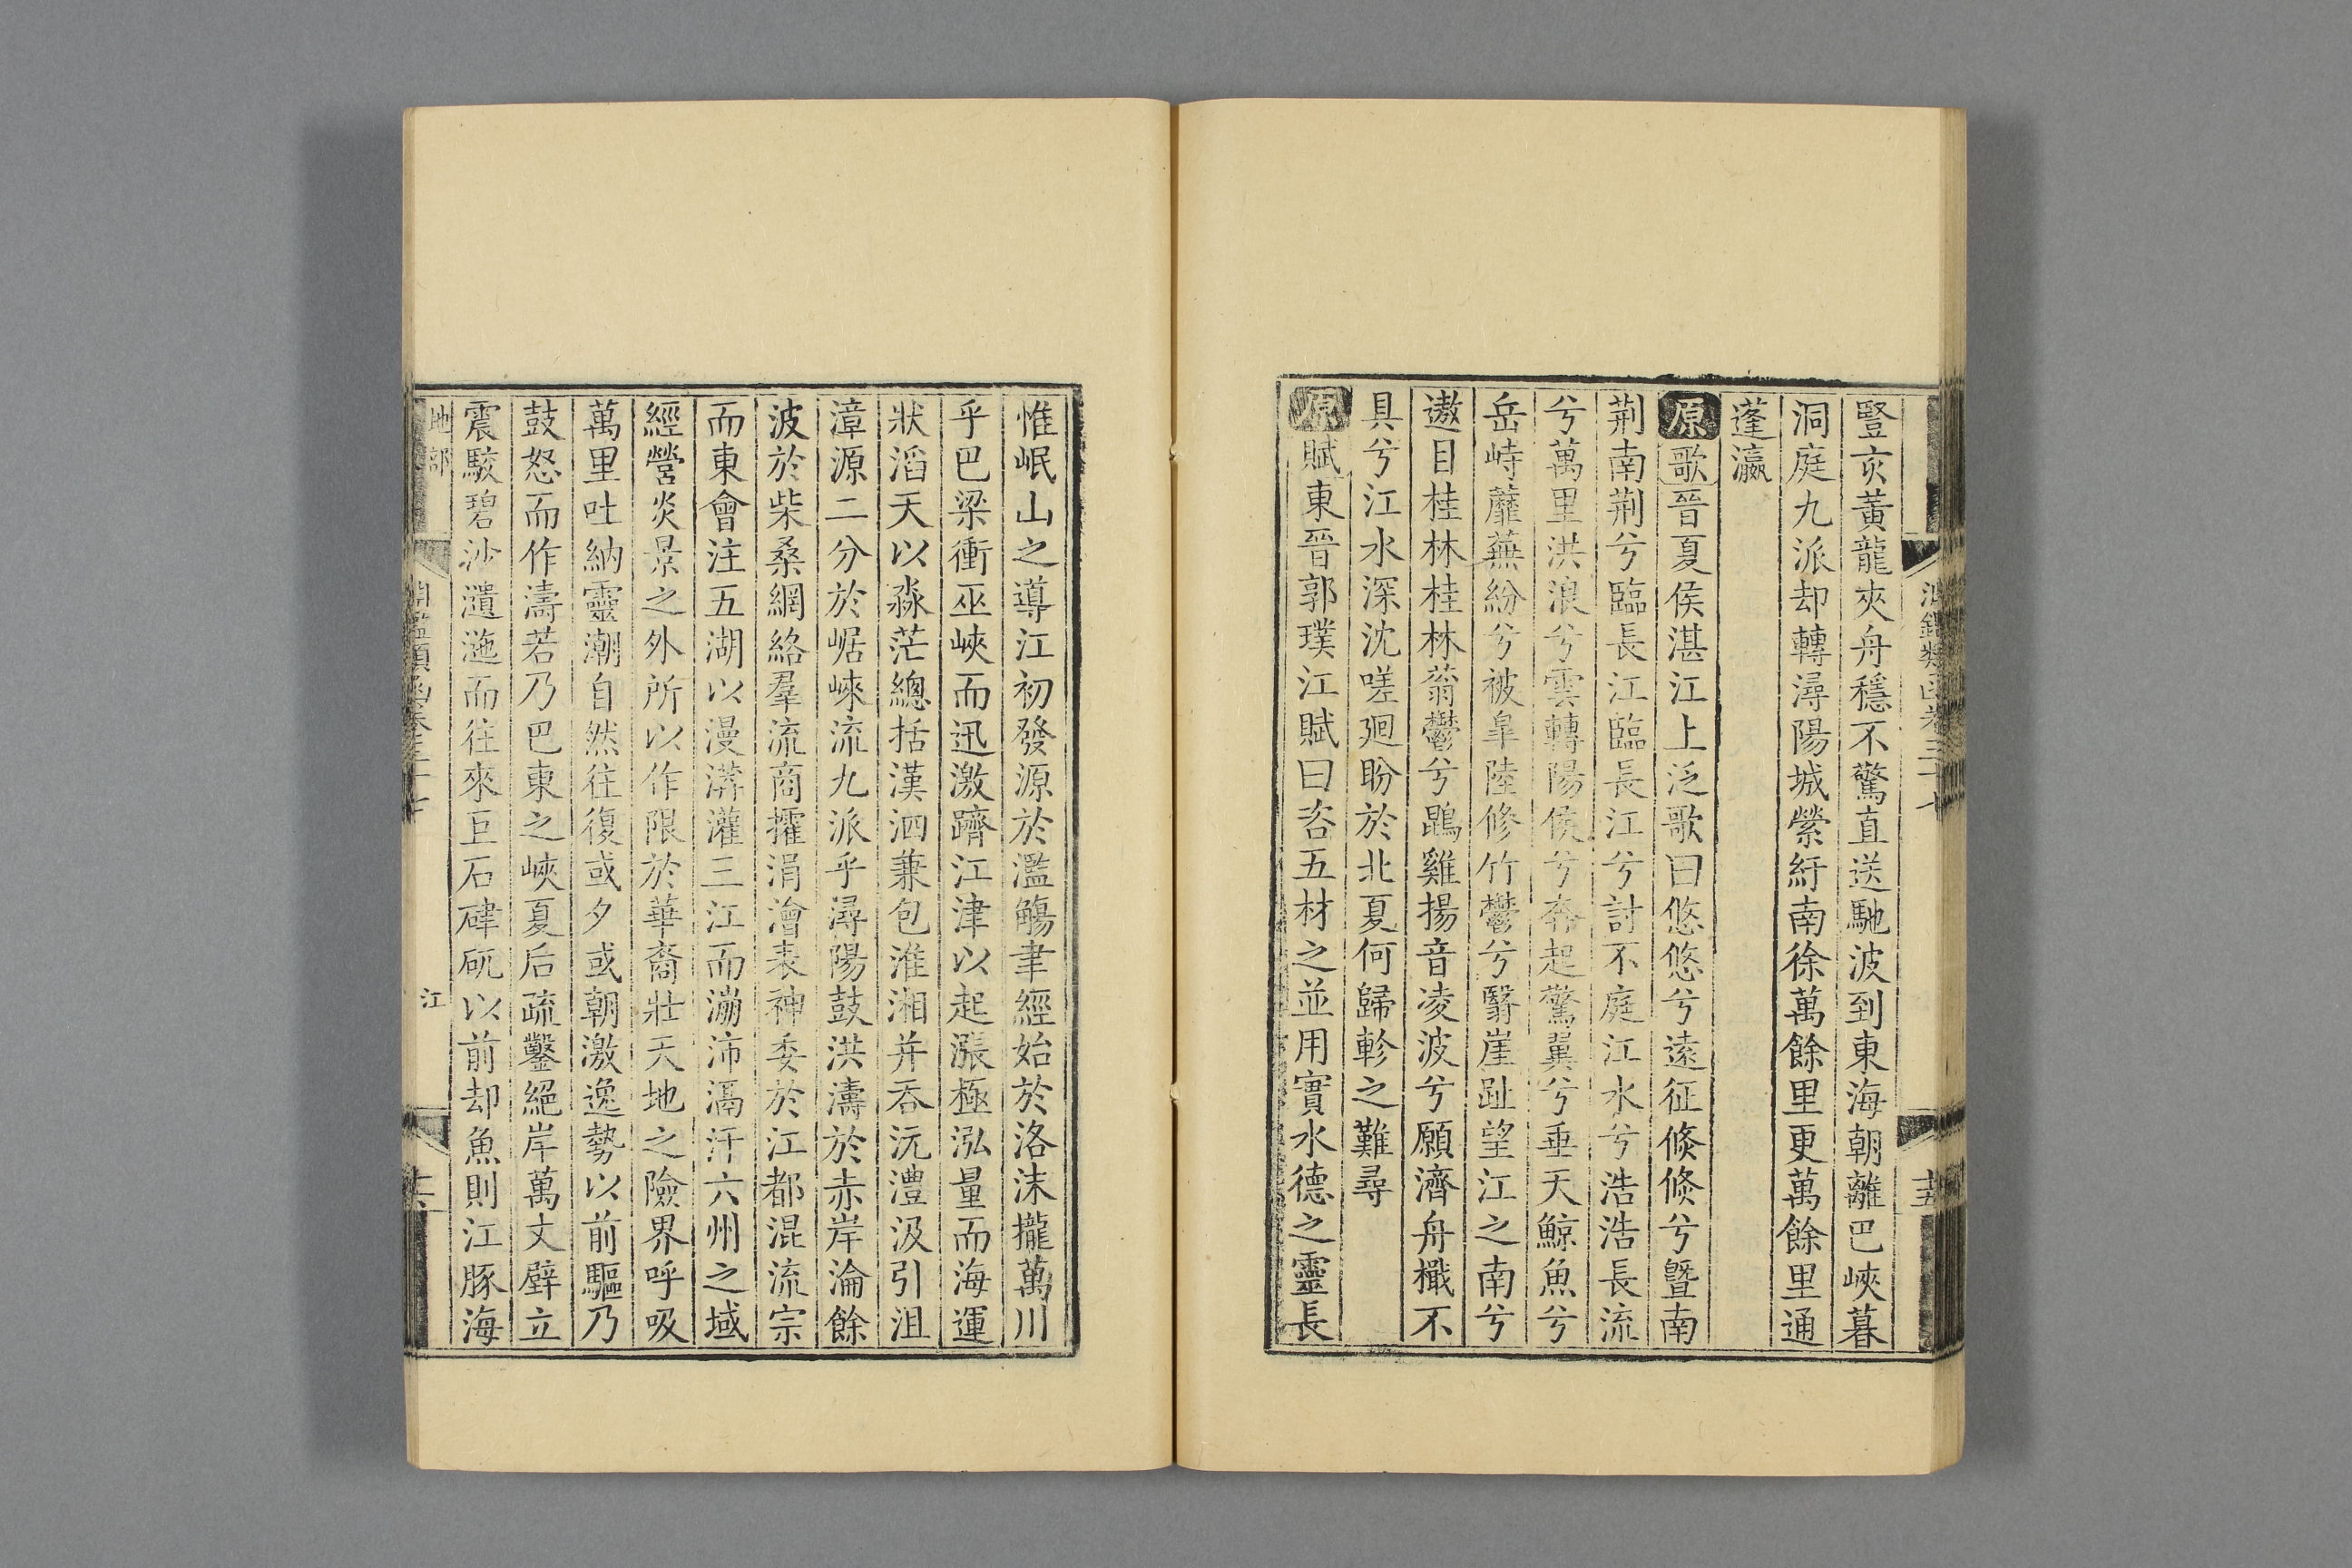 豎亥黃龍夾舟穩不驚直送馳波到東海朝離巴峽暮
洞庭九派却轉潯陽城縈紆南徐萬餘里更萬餘里通
蓬瀛
原歌晉夏侯湛江上泛歌曰悠悠兮遠征倏倏兮曁南
荆南荆兮臨長江臨長江兮討不庭江水兮浩浩長流
兮萬里洪浪兮雲轉陽侯兮奔起驚翼兮垂天鯨魚兮
岳峙蘼蕪紛兮被皐陸修竹鬱兮翳崖趾望江之南兮
遨目桂林桂林蓊鬱兮鵾雞揚音凌波兮願濟舟檝不
具兮江水深沈嗟廻盼於北夏何歸軫之難尋
原賦東晉郭璞江賦曰咨五材之並用實水德之靈長
惟岷山之導江初發源於濫觴聿經始於洛沬攏萬川
乎巴梁衝巫峽而迅激躋江津以起漲極泓量而海運
狀滔天以淼茫總括漢泗兼包淮湘并吞沅澧汲引沮
漳源二分於崌崍流九派乎潯陽鼓洪濤於赤岸淪餘
波於柴桑網絡羣流商攉涓澮表神委於江都混流宗
而東會注五湖以漫漭灌三江而漰沛滆汗六州之域
經營炎景之外所以作限於華裔壯天地之險界呼吸
萬里吐納靈潮自然往復或夕或朝激逸勢以前驅乃
鼓怒而作濤若乃巴東之峽夏后疏鑿絕岸萬丈壁立
震駭碧沙瀢𣵺而往來巨石硉矹以前却魚則江豚海
地部
江